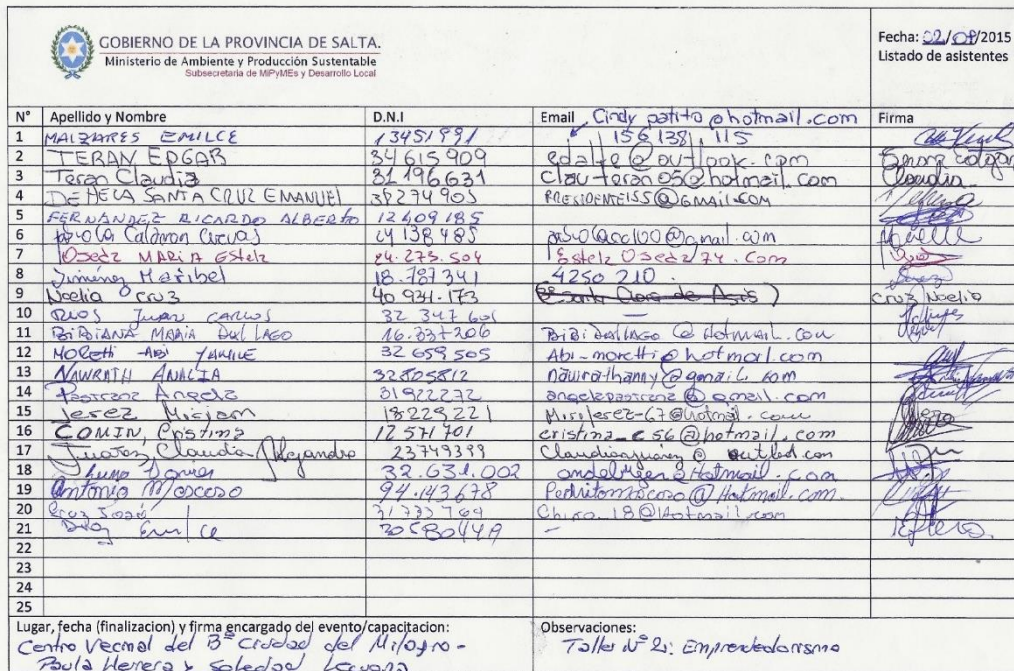 GOBIERNO DE LA PROVINCIA DE SALTA.
Ministerio de Ambiente y Producción Sustentable
Subsecretaría de MiPyMEs y Desarrollo Local
Fecha: 02/09/2015
Listado de asistentes
N° Apellido y Nombre D.N.I Email Cindy patito@hotmail.com Firma
1 MAIZARES EMILCE 13451991 156138115
2 TERAN EDGAR 34615909 edalte@outlook.com Edgar
3 Teran Claudia 31 196.631 clauteran05@hotmail.com Claudia
4 DE MECA SANTA CRUZ EMANUEL 38274905 PRESIDENTE155@GMAIL.COM
5 FERNANDEZ RICARDO ALBERTO 12409185
6 Calderon Cuevas 24138485
7 MARIA Estela 24.275.504
8 Jiménez Maribel 18.787341 4250 210.
9 Noelia Cruz 40 934.173 Cruz Noelia
10 RIOS Juan CARLOS 32 347 601 —
11 BIBIANA MARIA DALLAGO 16.337206 BiBiDallago@Hotmail.com
12 MORETTI ABI YAMILE 32 659 505 Abi-moretti@hotmail.com
13 NAWRATH ANALIA 32805812 nawrathanny@gmail.com
14 Pastrana Angela 31922272 angelapastrana@gmail.com
15 Jerez Miriam 18229221 MiriJerez-67@hotmail.com
16 COMIN, Cristina 12571701 cristina_c56@hotmail.com
17 Juarez, Claudia Alejandra 23749399 Claudiaajuarez@outlook.com
18 32.631.002 @Hotmail.com
19 Antonio Moscoso 94.143678 @Hotmail.com.
20 Cruz José 31733764 Chiro_18@Hotmail.com
21 Diaz Emilce —
22
23
24
25
Lugar, fecha (finalizacion) y firma encargado del evento/capacitacion:
Centro Vecinal del B° Ciudad del Milagro -
Paula Herrera y Soledad
Observaciones:
Taller N° 2: Emprendedorismo